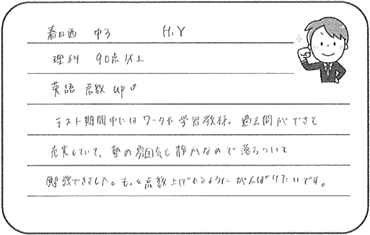 春日西 中3 H.Y
理科 90点以上
英語 点数up♂
テスト期間中にはワークや学習教材、過去問ができて
充実していて、塾の雰囲気も静かなので落ちついて
勉強できました。もっと点数上げれるようにがんばりたいです。